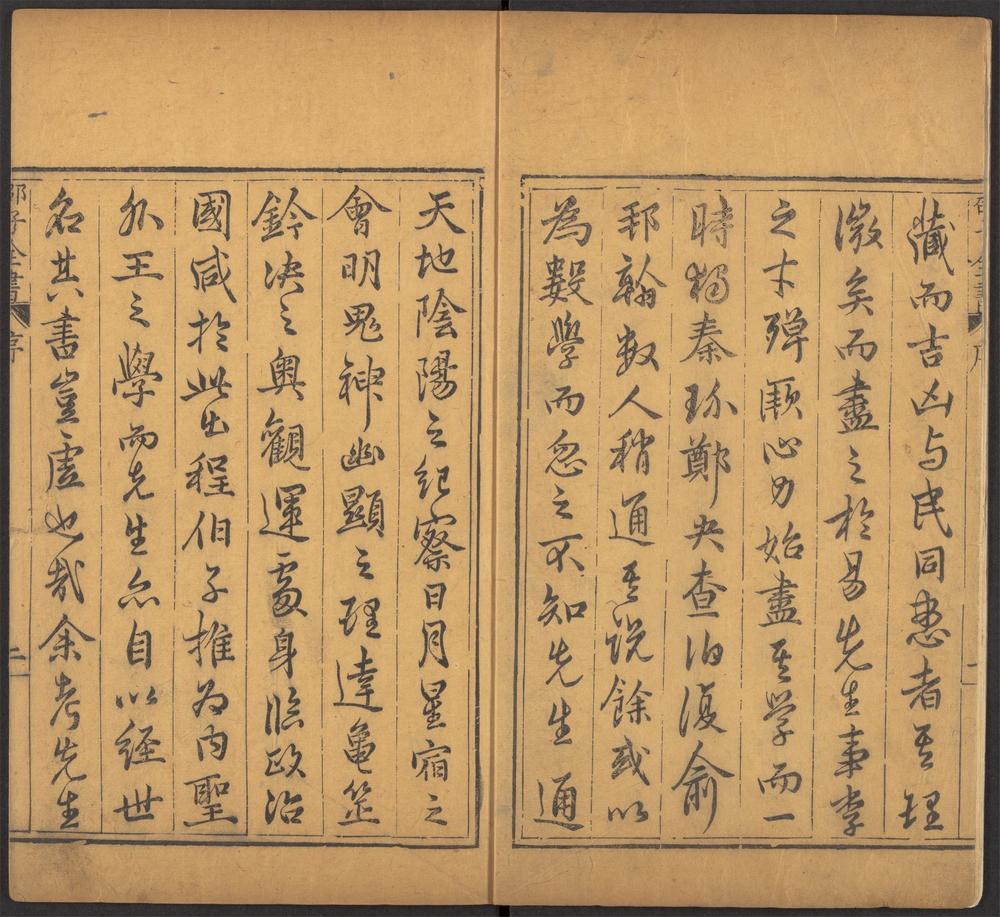 藏而吉凶与民同患者其理
微矣而盡之於易先生事李
之才殫厥心力始盡其学而一
時獨秦玠鄭夬查復俞
翰数人稍通其说餘或以
為數學而忽之不知先生通
天地陰陽之紀察日月星宿之
會明鬼神幽顯之理達龜筮
鈐决之奥觀運處身臨政治
國咸於此出程伯子推为内聖
外王之學而先生亦自以经世
名其書豈虚也哉余考先生
邵子全書 序 二